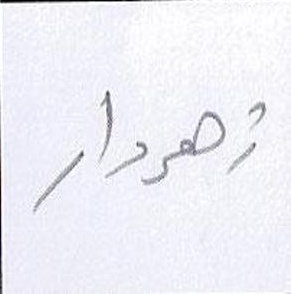 زهردار